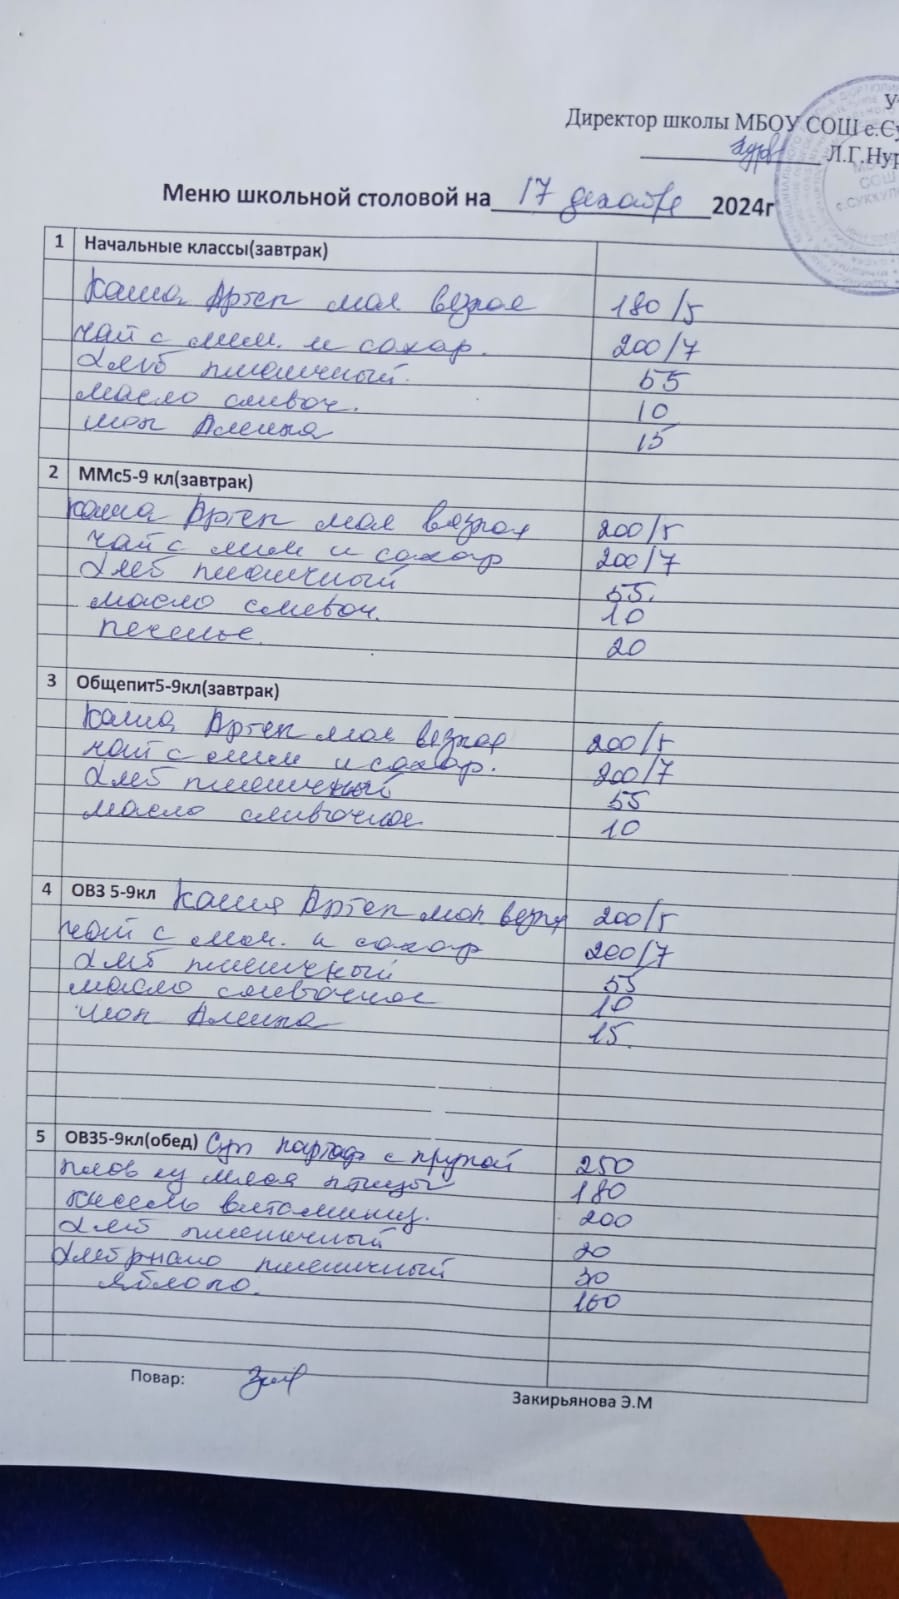 У
Директор школы МБОУ СОШ с.Су
Л.Г.Нур
Меню школьной столовой на 17 декабря 2024г
1 Начальные классы(завтрак)
Каша Артек мол вязкая 180/5
чай с лим. и сахар. 200/7
Хлеб пшеничный. 55
масло сливоч. 10
шок Аленка 15
2 ММс5-9 кл(завтрак)
Каша Артек мол вязкая 200/5
чай с лим и сахар 200/7
Хлеб пшеничный 55.
масло сливоч. 10
печенье 20
3 Общепит5-9кл(завтрак)
Каша Артек мол вязкая 200/5
чай с лим и сахар. 200/7
Хлеб пшеничный 55
масло сливочное 10
4 ОВЗ 5-9кл Каша Артек мол вязк 200/5
чай с лим. и сахар 200/7
Хлеб пшеничный 55
масло сливочное 10
шок Аленка 15.
5 ОВЗ5-9кл(обед) Суп картоф с крупой 250
плов из мяса птицы 180
кисель витаминиз. 200
Хлеб пшеничный 20
Хлеб ржано пшеничный 30
яблоко. 160
Повар:
Закирьянова Э.М